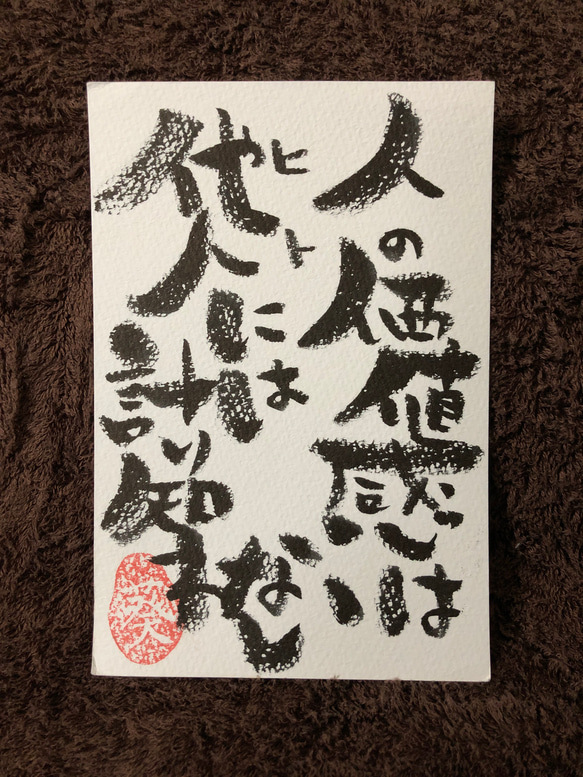 人の価値感は
他人には計り知れない
ヒト
葵